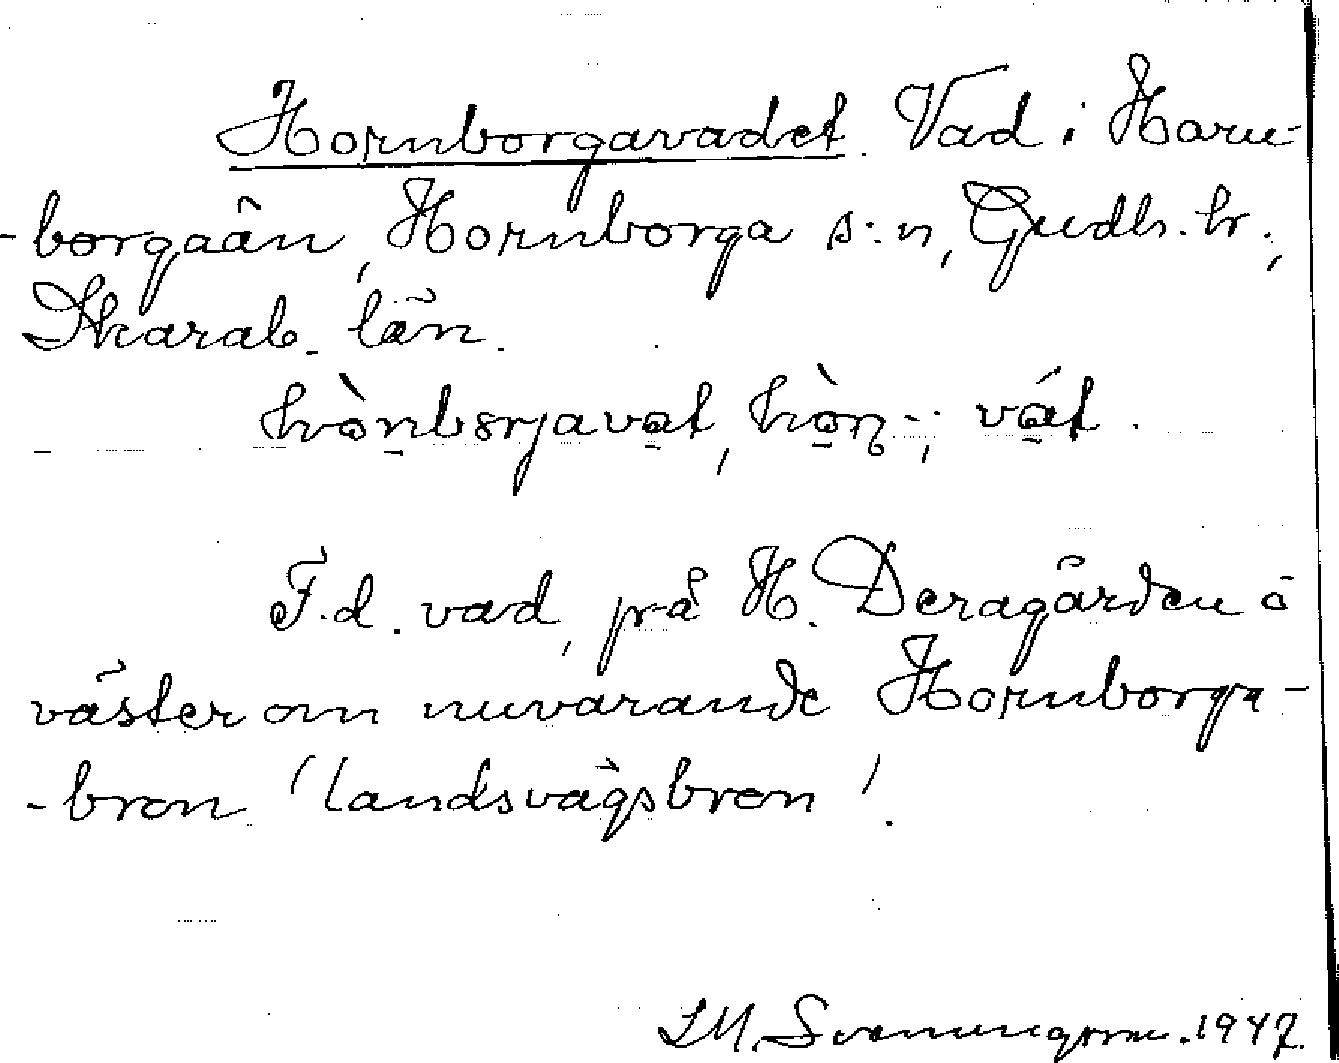 Hornborgavadet. Vad i Horn-
-borgaån, Hornborga s:n, Gudh. hr.,
Skarab. län.
hò̠nbɛrjava̠t, hò̠n-; vá̠t.
F.d. vad, på H. Deragården å
väster om nuvarande Hornborga-
-bron 'landsvägsbron'.
1947.